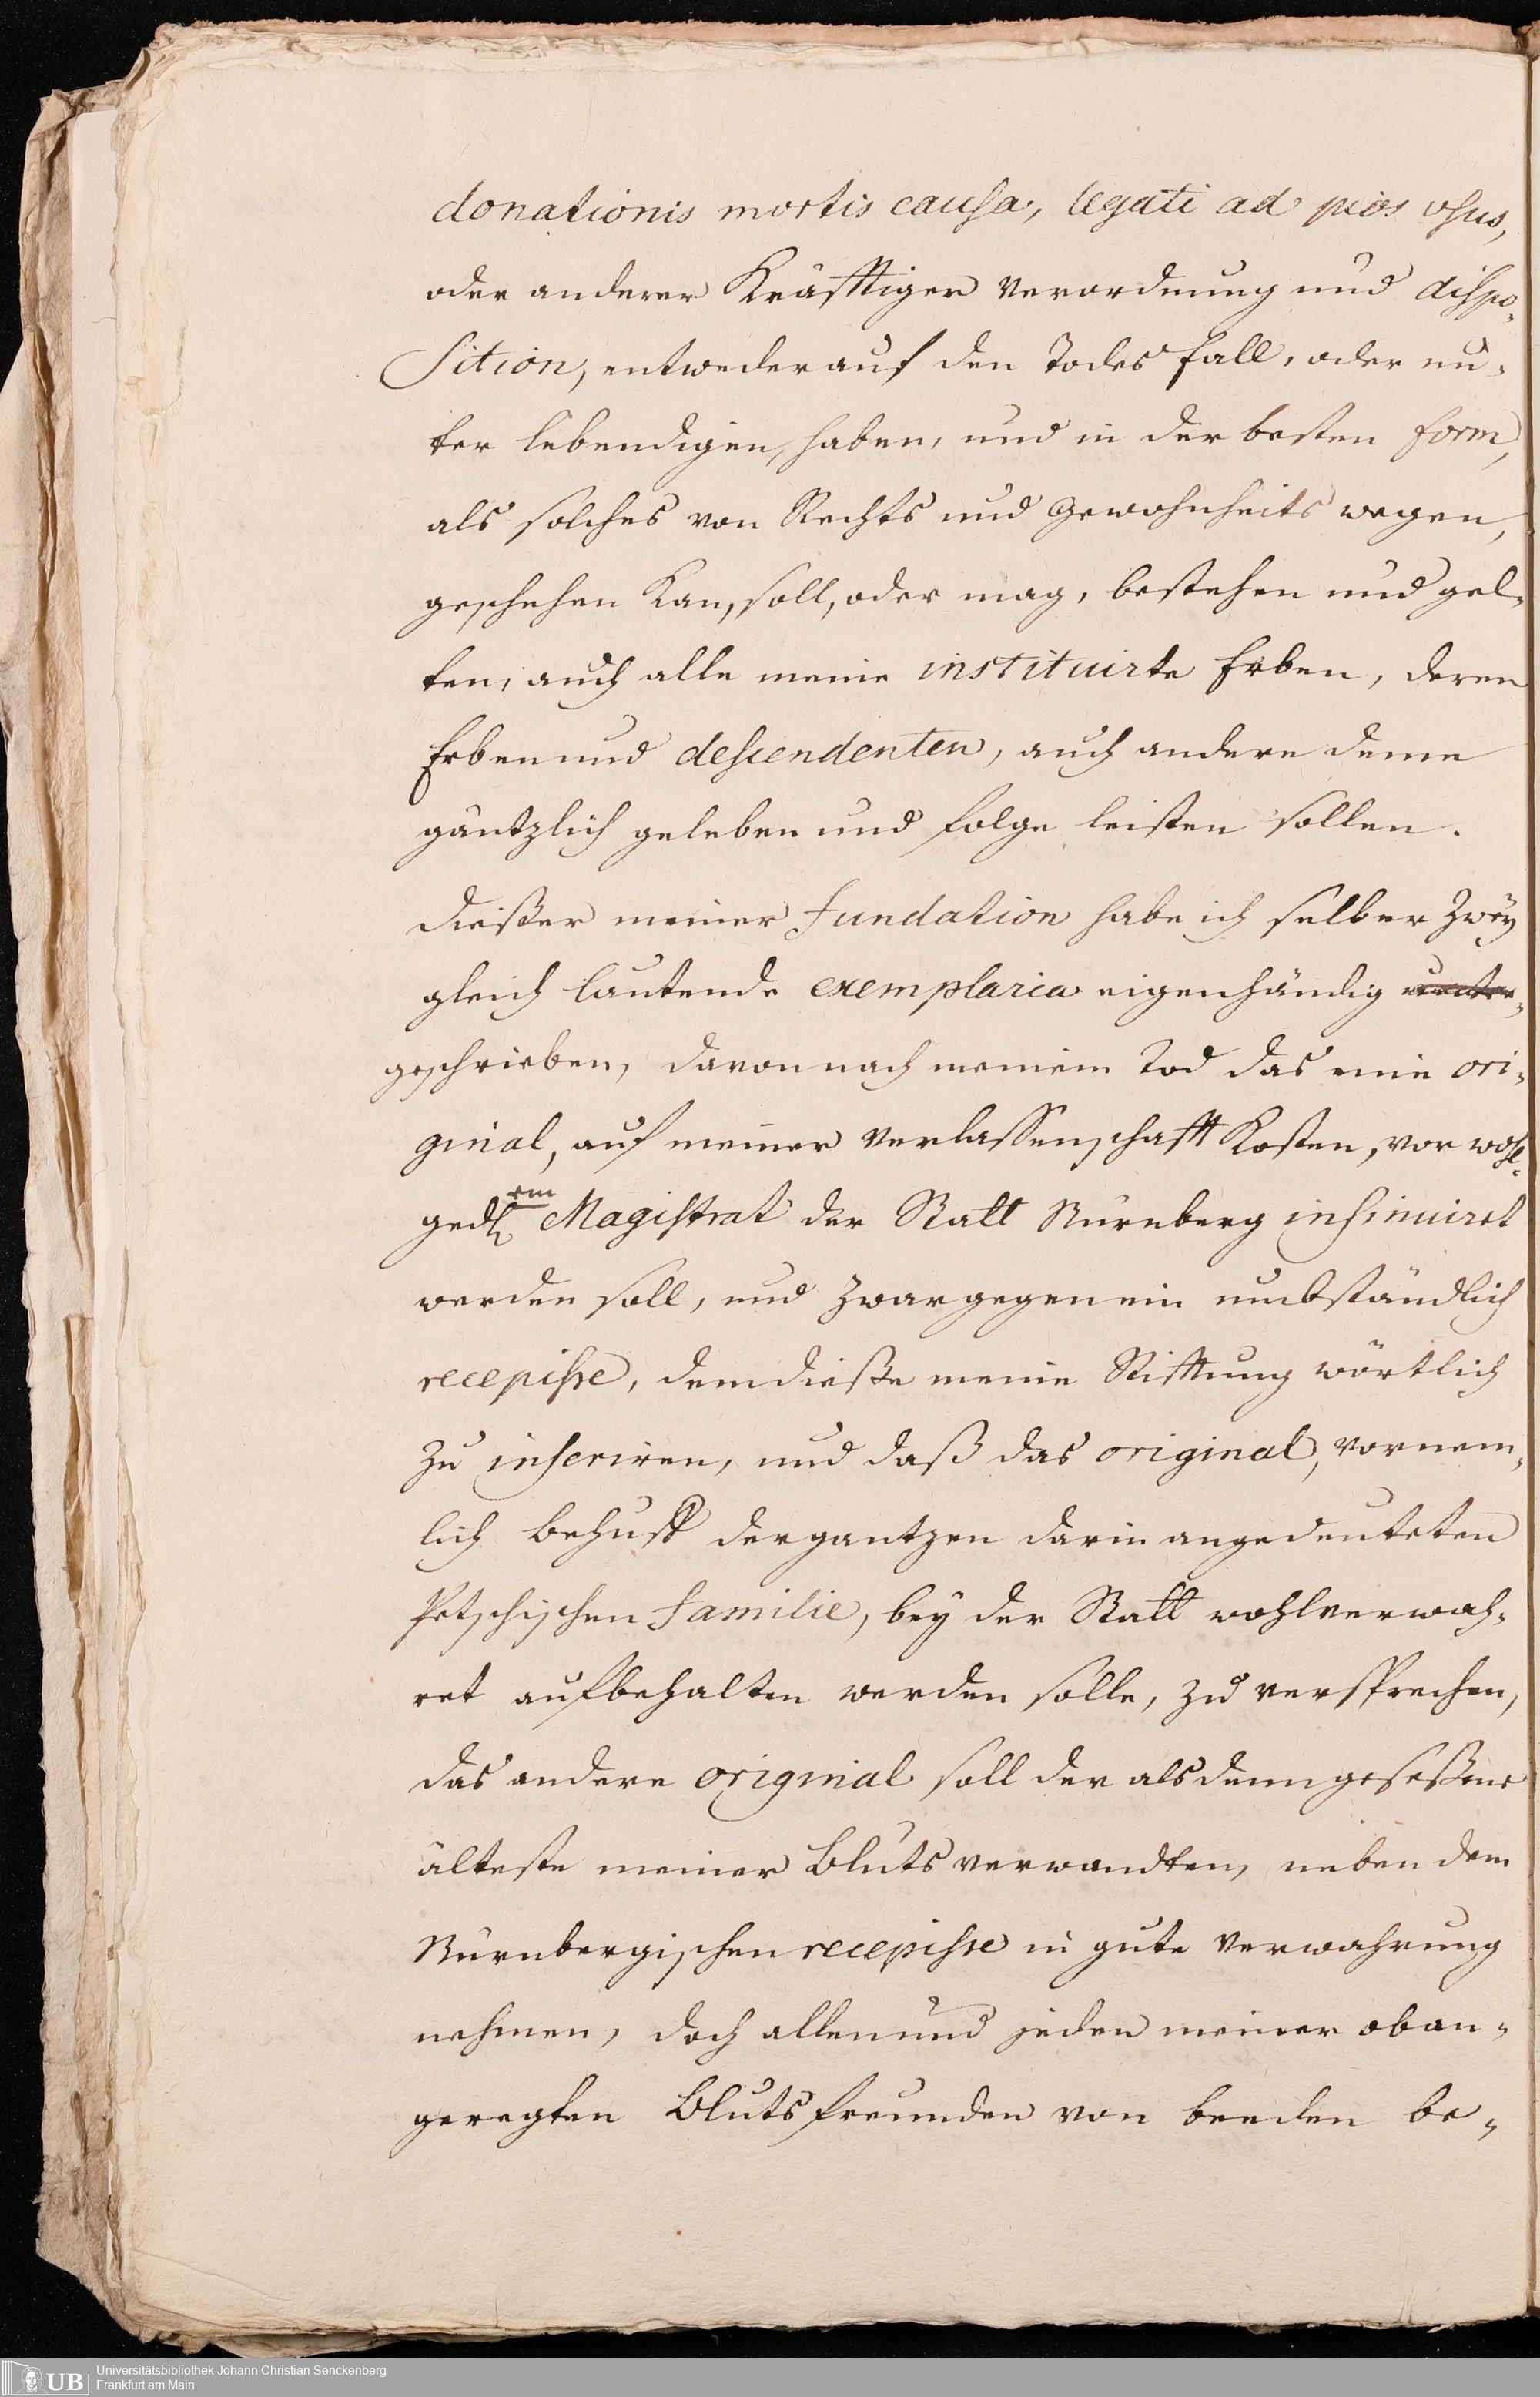 donationis mortis causa, legati ad pios usus,
oder anderer Kräfftiger Verordnung und dispo-
sition, entweder auf den Todes fall, oder un-
ter lebendigen, haben, und in der besten form,
als solches von Rechts und Gewohnheits wegen,
geschehen Kan, soll, oder mag, bestehen und gel-
ten, auch alle meine instituirte Erben, deren
Erben und descendenten, auch andere deme
gäntzlich geleben und folge leisten sollen.
Dießer meiner fundation habe ich selber Zwey
gleich lautende exemplaria eigenhändig unter-
geschrieben, davon nach meinem Tod das eine ori-
ginal, auf meiner Verlassenschafft Kosten, vor wohl-
gedh em Magistrat der Statt Nürnberg insinuiret
werden soll, und Zwar gegen ein umbständlich
recepisse, dem dieße meine Stifftung wörtlich
Zu inseriren, und daß das original, vornem-
lich behuff der gantzen darin angedeuteten
Petschischen familie, bey der Statt wohlverwah-
ret aufbehalten werden solle, zu versprechen,
das andere original soll der alsdenn geseßene
älteste meiner Bluts verwandten, neben dem
Nürnbergischen recepisse in gute Verwahrung
nehmen, doch allen und jeden meiner oban-
geregten Bluts freunden von beeden be-
Universitätsbibliothek Johann Christian Senckenberg
Frankfurt am Main
UB